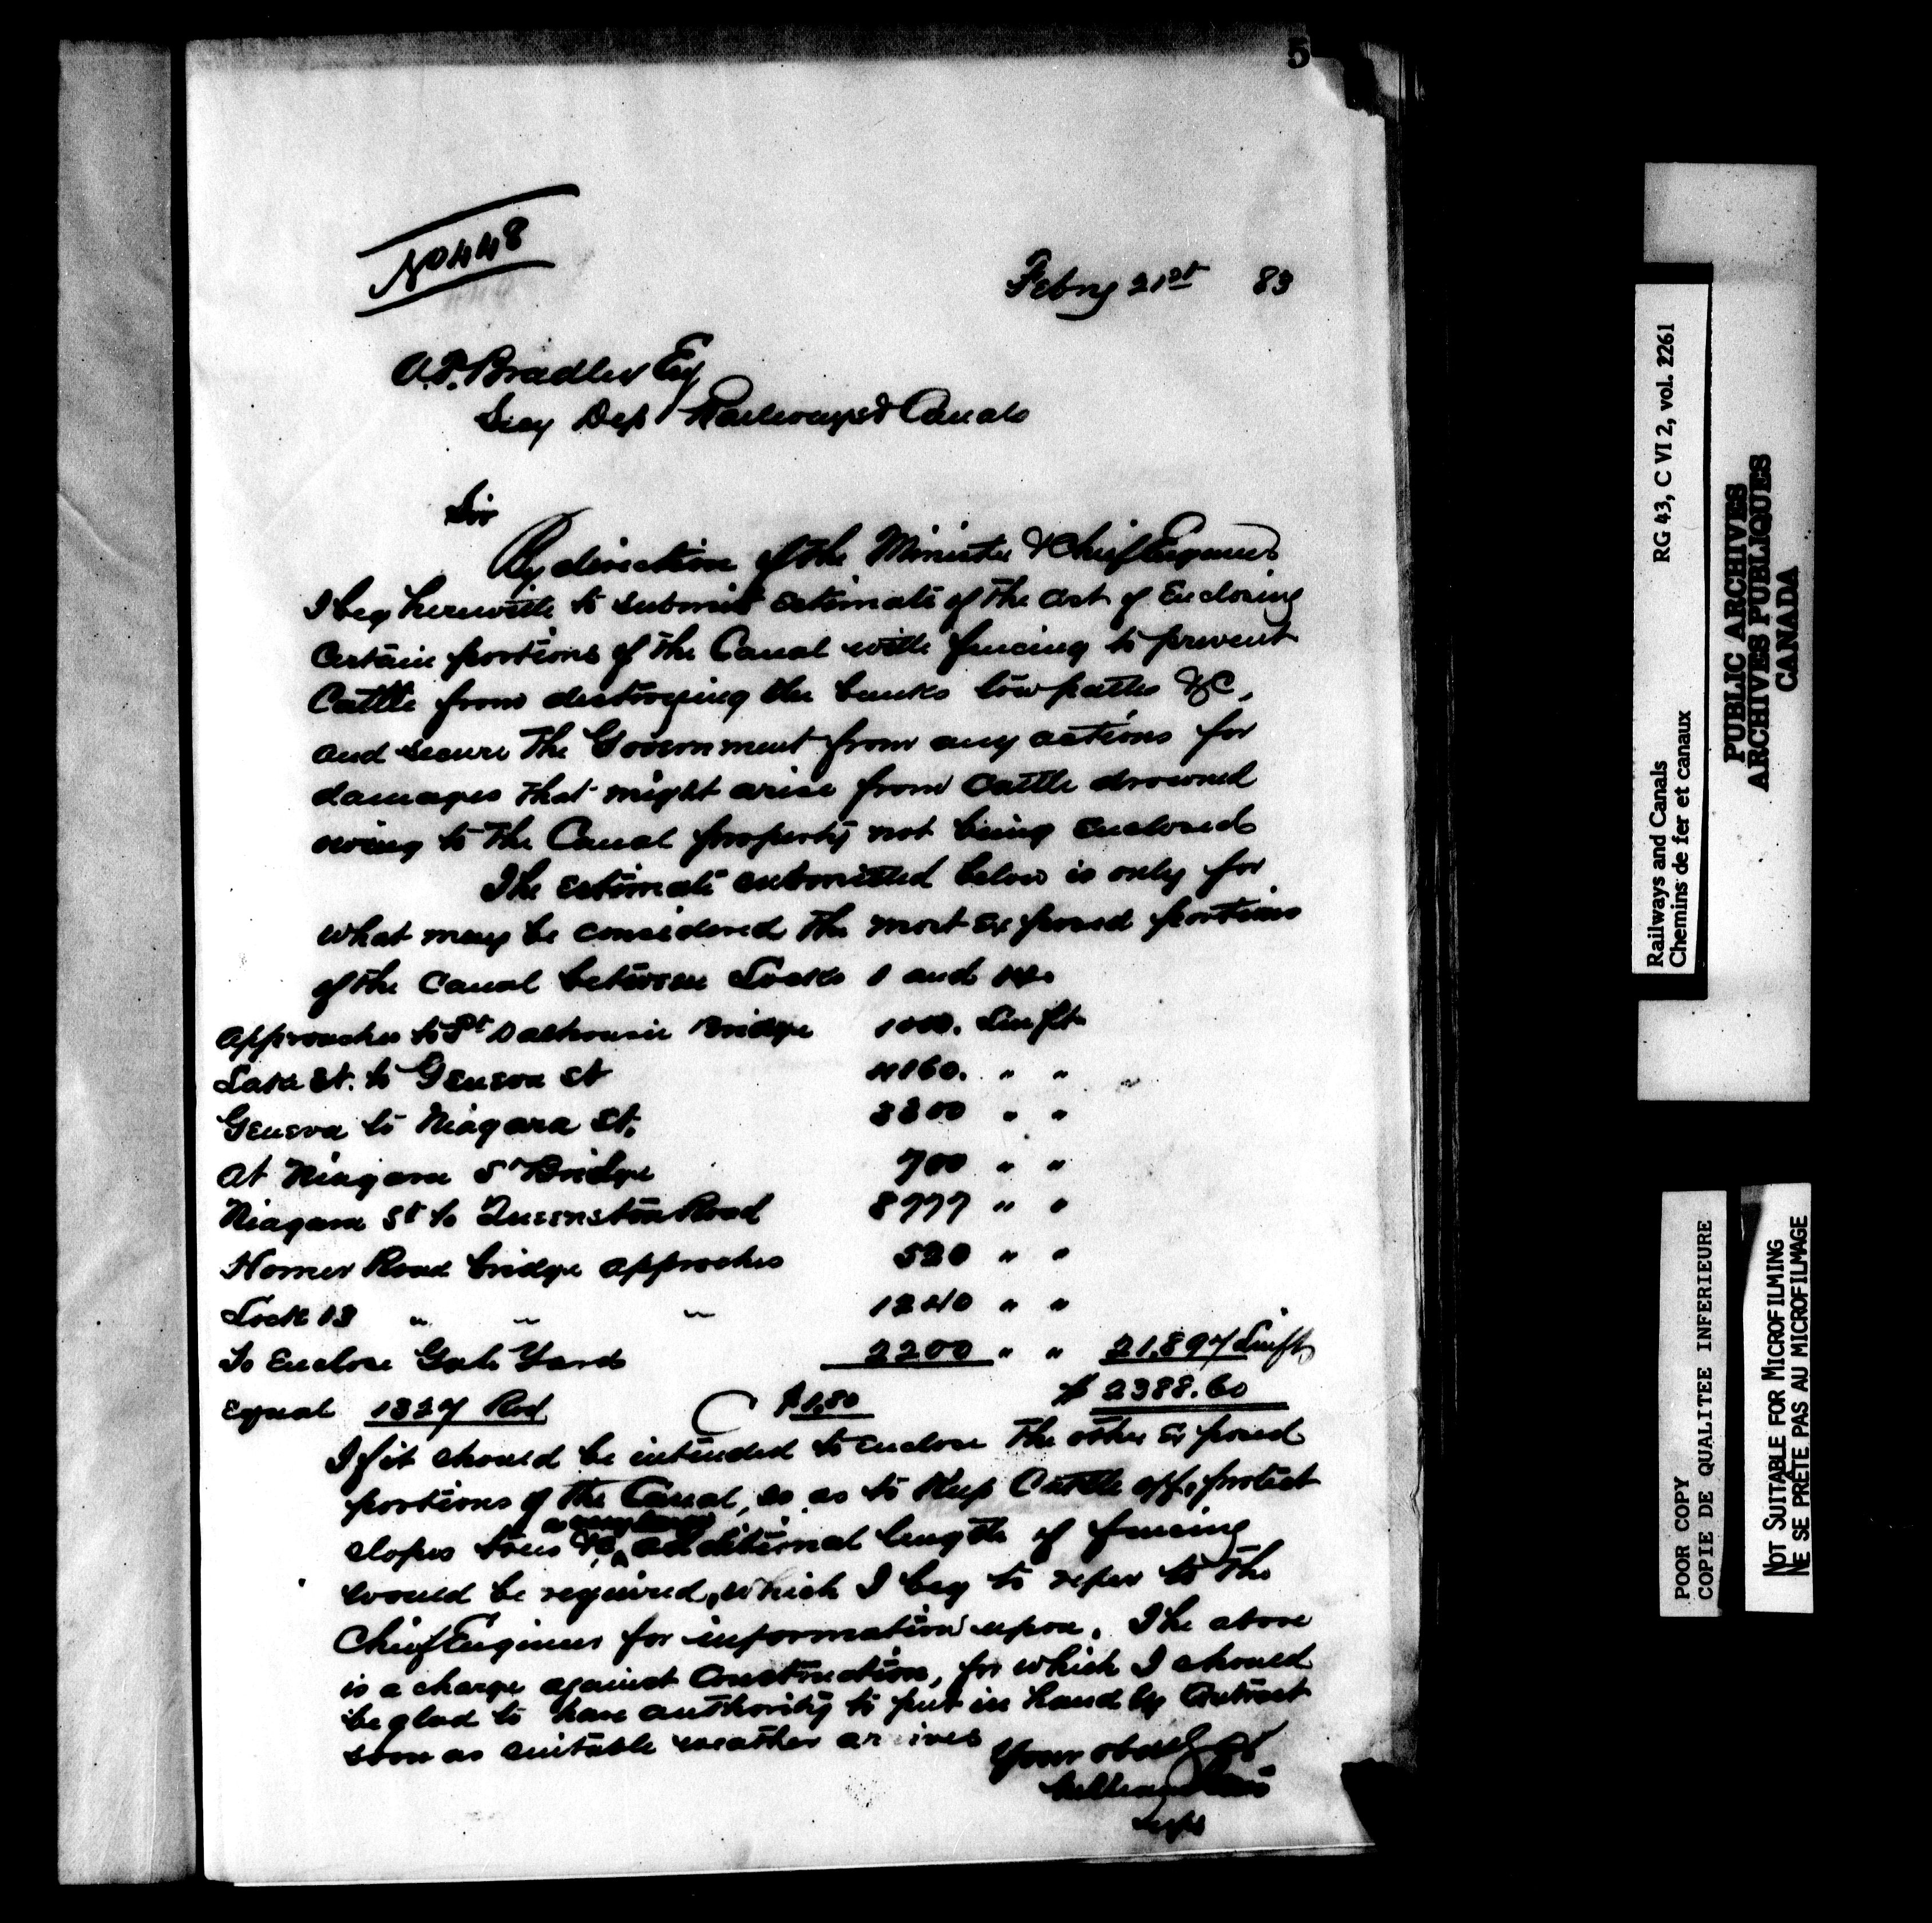 5
No 448
Febry 21st 83
A.P. Bradley Esq
Secy Dep Railways & Canals
Sir
By direction of the Minister & Chief Engineer
I beg herewith to submit estimate of the cost of Enclosing
Certain portions of the Canal with fencing to prevent
Cattle from destroying the banks tow paths &c,
and secure the Government from any actions for
damages that might arise from Cattle drowned
owing to the Canal property not being enclosed
The estimate submitted below is only for
what may be considered the most exposed portions
of the Canal between Locks 1 and 14.
Approaches to Pt Dalhousie Bridge 1000. Lin ft
Lake St. to Geneva St 4160. " "
Geneva to Niagara St. 3300 " "
At Niagara St Bridge 700 " "
Niagara St to Queenston Road 8777 " "
Homer Road bridge approches 520 " "
Lock 13 " " " 1240 " "
To Enclose Gate Yard 2200 " " 21,897 Lin ft
Equal 1327 Rod $1,80 $2388.60
If it should be intended to enclose the other exposed
portions of the Canal, so as to keep Cattle off, protect
slopes trees &c, additional length of fencing
would be required, which I beg to refer to the
Chief Engineer for information upon. The above
is a charge against Construction, for which I should
be glad to have authority to put in hand by Contract
soon as suitable weather arrives
Your obdt
Supt
Railways and Canals RG 43, C VI 2, vol. 2261
Chemins de fer et canaux
PUBLIC ARCHIVES
ARCHIVES PUBLIQUES
CANADA
POOR COPY
COPIE DE QUALITEE INFERIEURE
NOT SUITABLE FOR MICROFILMING
NE SE PRÊTE PAS AU MICROFILMAGE